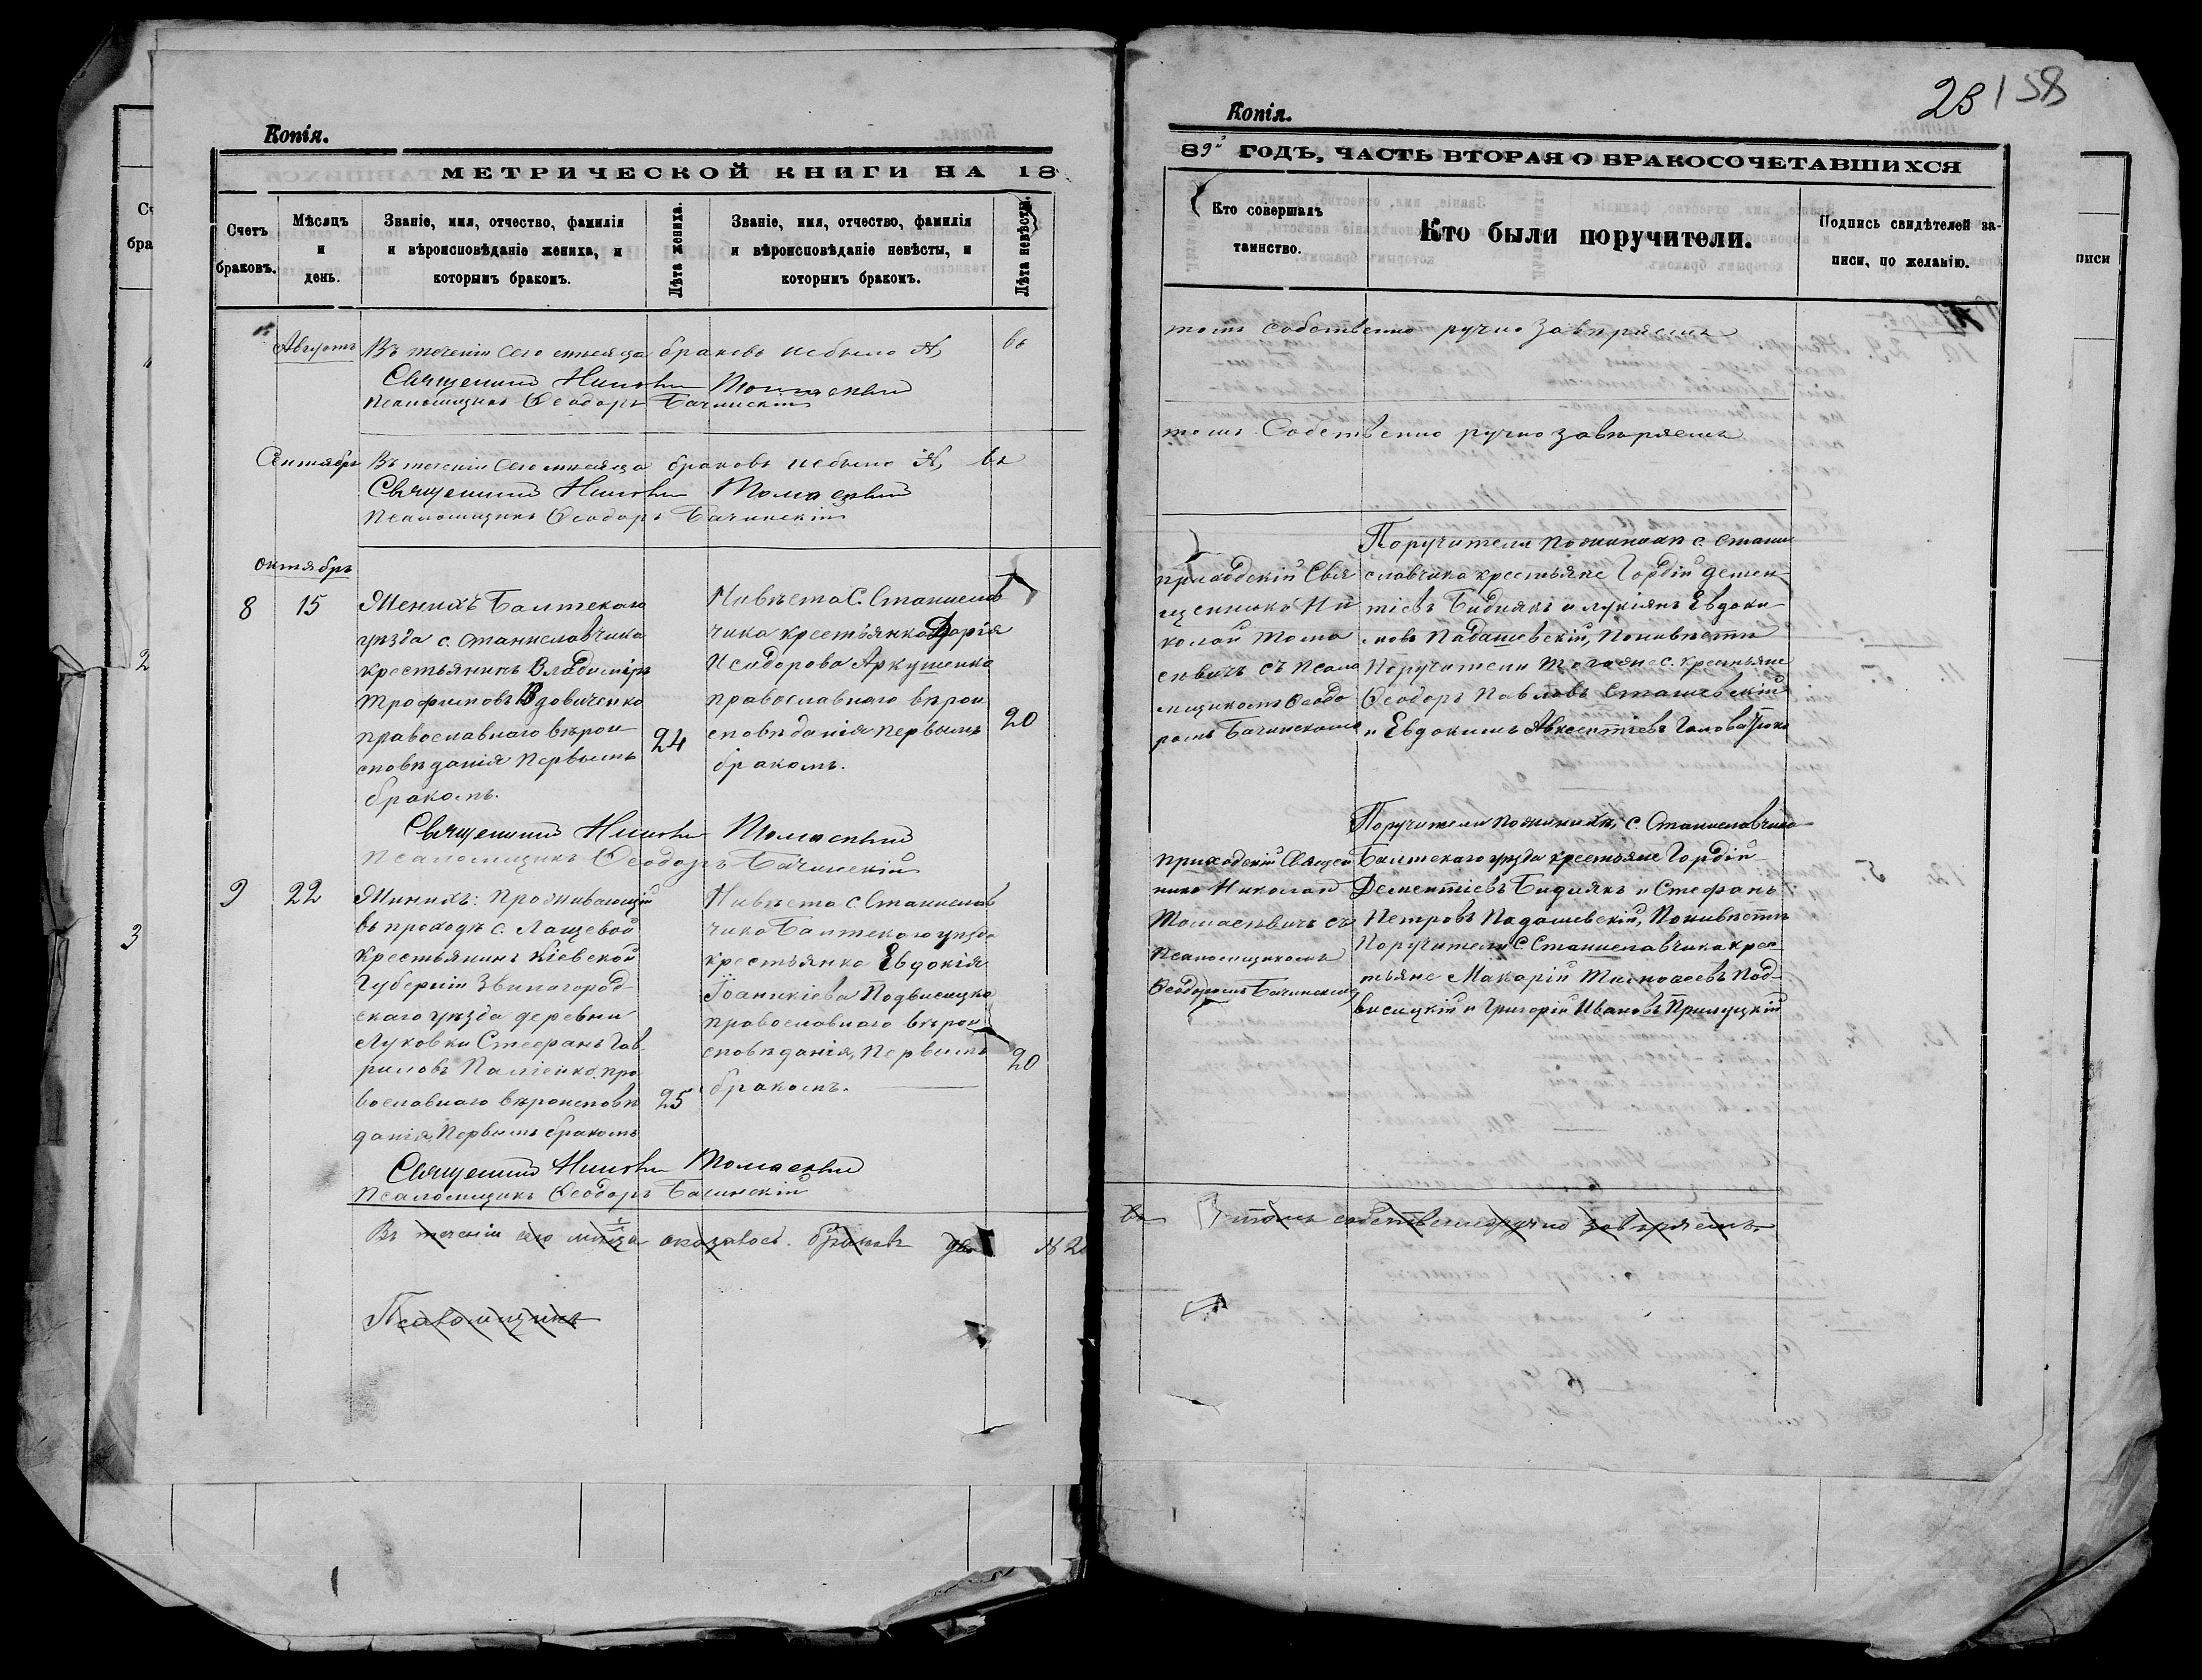 Копія.
МЕТРИЧЕСКОЙ КНИГИ НА 18
Счетъ браковъ.
Мѣсяцъ и день.
Званіе, имя, отчество, фамилія и вѣроисповѣданіе жениха, и которымъ бракомъ.
Лѣта жениха.
Званіе, имя, отчество, фамилія и вѣроисповѣданіе невѣсты, и которымъ бракомъ.
Лѣта невѣсты.
Августъ
Въ теченіи сего мѣсяца браковъ небыло въ
Священникъ Николай
Псаломщикъ Ѳеодоръ Бачинскій
Сентябрь
Въ теченіи сего мѣсяца браковъ небыло въ
Священникъ Николай
Псаломщикъ Ѳеодоръ Бачинскій
октябрь
8 15
Женихъ Балтскаго
уѣзда с. Станиславчика
крестьянинъ Владиміръ
Трофимовъ Вдовиченко
православнаго вѣрои
сповѣданія первымъ
бракомъ.
24
Нивѣста С. Станислав
чика крестьянка Дарія
Исидорова Аркушенко
православнаго вѣрои
сповѣданія первымъ
бракомъ.
20
Священникъ Николай
Псаломщикъ Ѳеодоръ Бачинскій
9 22
Жинихъ: Проживающій
въ приходѣ с. Лащевой
крестьянинъ Кіевской
Губерніи Звиногород
скаго уѣзда деревни
Луковки Стефанъ Гав
риловъ Паліенко, пра
вославнаго вѣроисповѣ
данія, Первымъ бракомъ
25
Нивѣста с. Станислав
чика Балтскаго уѣзда
крестьянка Евдокія
Іоаникіева Подвисицка
православнаго вѣрои
сповѣданія, Первымъ
бракомъ.
20
Священникъ Николай
Псаломщикъ Ѳеодоръ Бачинскій
Въ теченіи сего оказалось браковъ два № 2
Псаломщикъ
23 158
Копія.
89 ГОДЪ, ЧАСТЬ ВТОРАЯ О БРАКОСОЧЕТАВШИХСЯ
Кто совершалъ таинство.
Кто были поручители.
Подпись свидѣтелей записи, по желанію.
томъ собственно ручно завѣряемъ
томъ Собственно ручно завѣряемъ
приходскій Свя
щенникъ Ни
колай Тома
севичъ съ псало
мщикомъ Ѳеодо
ромъ Бачинскимъ
Поручители пожинихѣ с. Стани
славчика крестьяне Гордій демен
тіевъ Биднякъ и лукіянъ Евдоки
мовъ Падашевскій, Понивѣстѣ
Поручители тогожес. крестьяне
Ѳеодоръ Павловъ Сташевскій
и Евдокимъ Авксентіевъ
приходскій Священ
никъ Николай
Томасевичъ съ
Псаломщикомъ
Ѳеодоромъ Бачинскимъ
Поручители пожинихѣ, с. Станиславчика
Балтскаго уѣзда крестьяне Гордій
Дементіевъ Биднякъ и Стефанъ
Петровъ Падашевскій, Понивѣстѣ
Поручители С. Станиславчика крес
тьяне Макарій Под
висицкій и Григорій Ивановъ Прилуцкій
въ томъ собственноручно завѣряемъ